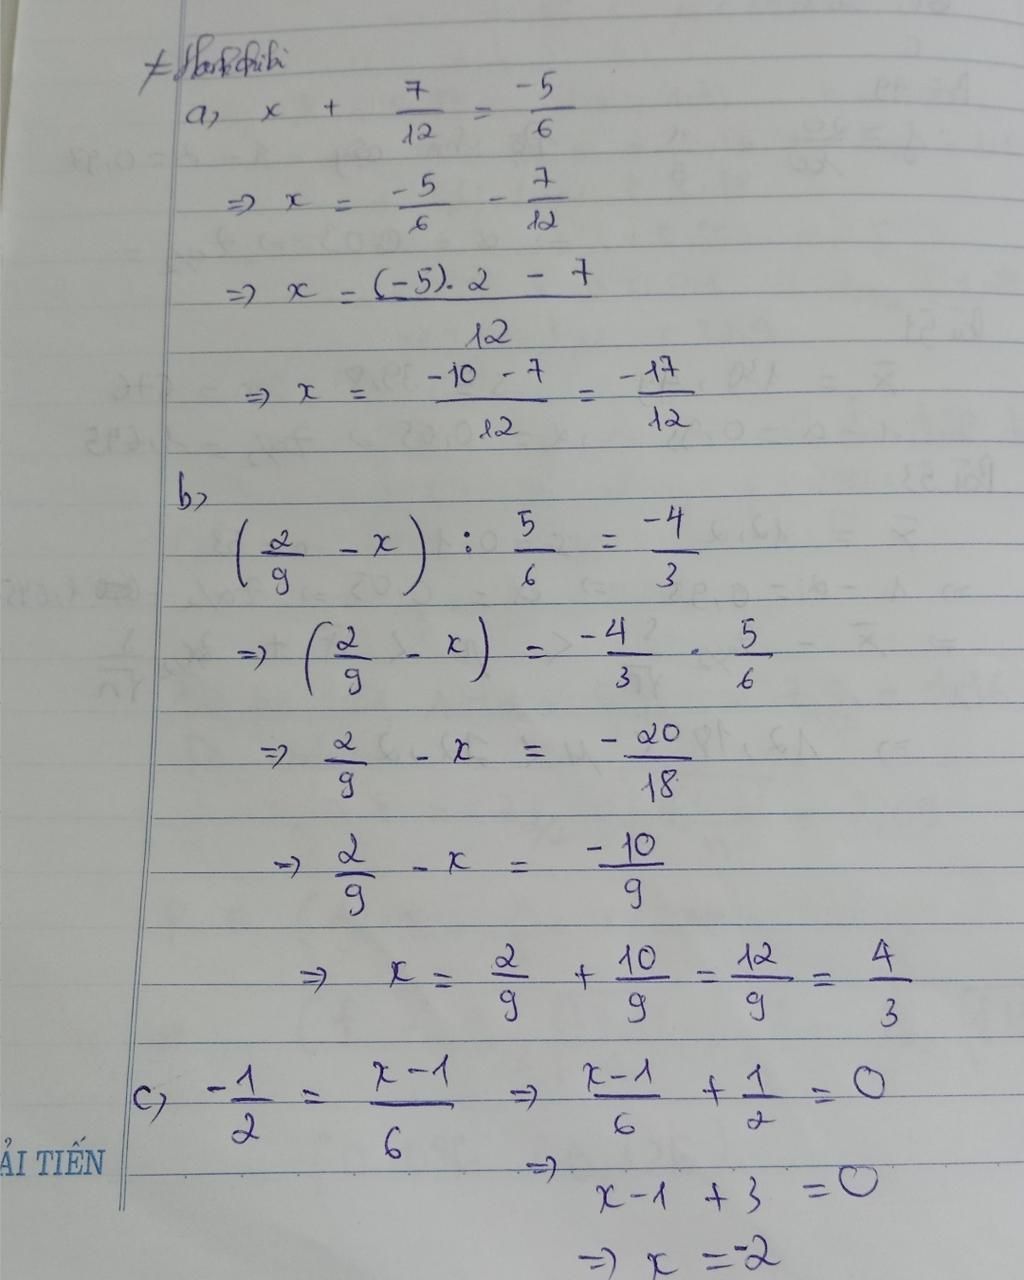 a) x + 7/12 = -5/6
=> x = -5/6 - 7/12
=> x = ((-5).2 - 7)/12
=> x = (-10 - 7)/12 = -17/12
b)
(2/9 - x) : 5/6 = -4/3
=> (2/9 - x) = -4/3 . 5/6
=> 2/9 - x = -20/18
=> 2/9 - x = -10/9
=> x = 2/9 + 10/9 = 12/9 = 4/3
c) -1/2 = (x-1)/6 => (x-1)/6 + 1/2 = 0
=> x-1 + 3 = 0
=> x = -2
ẢI TIẾN